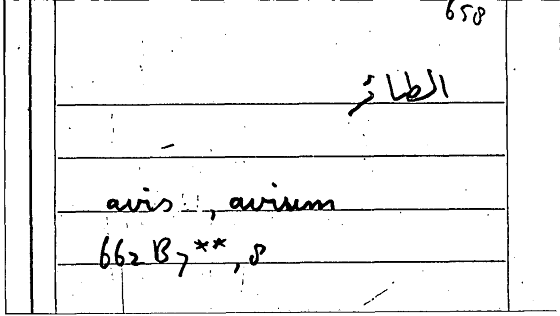 658
الطائر
avis , avium
662 B 7 **, 8